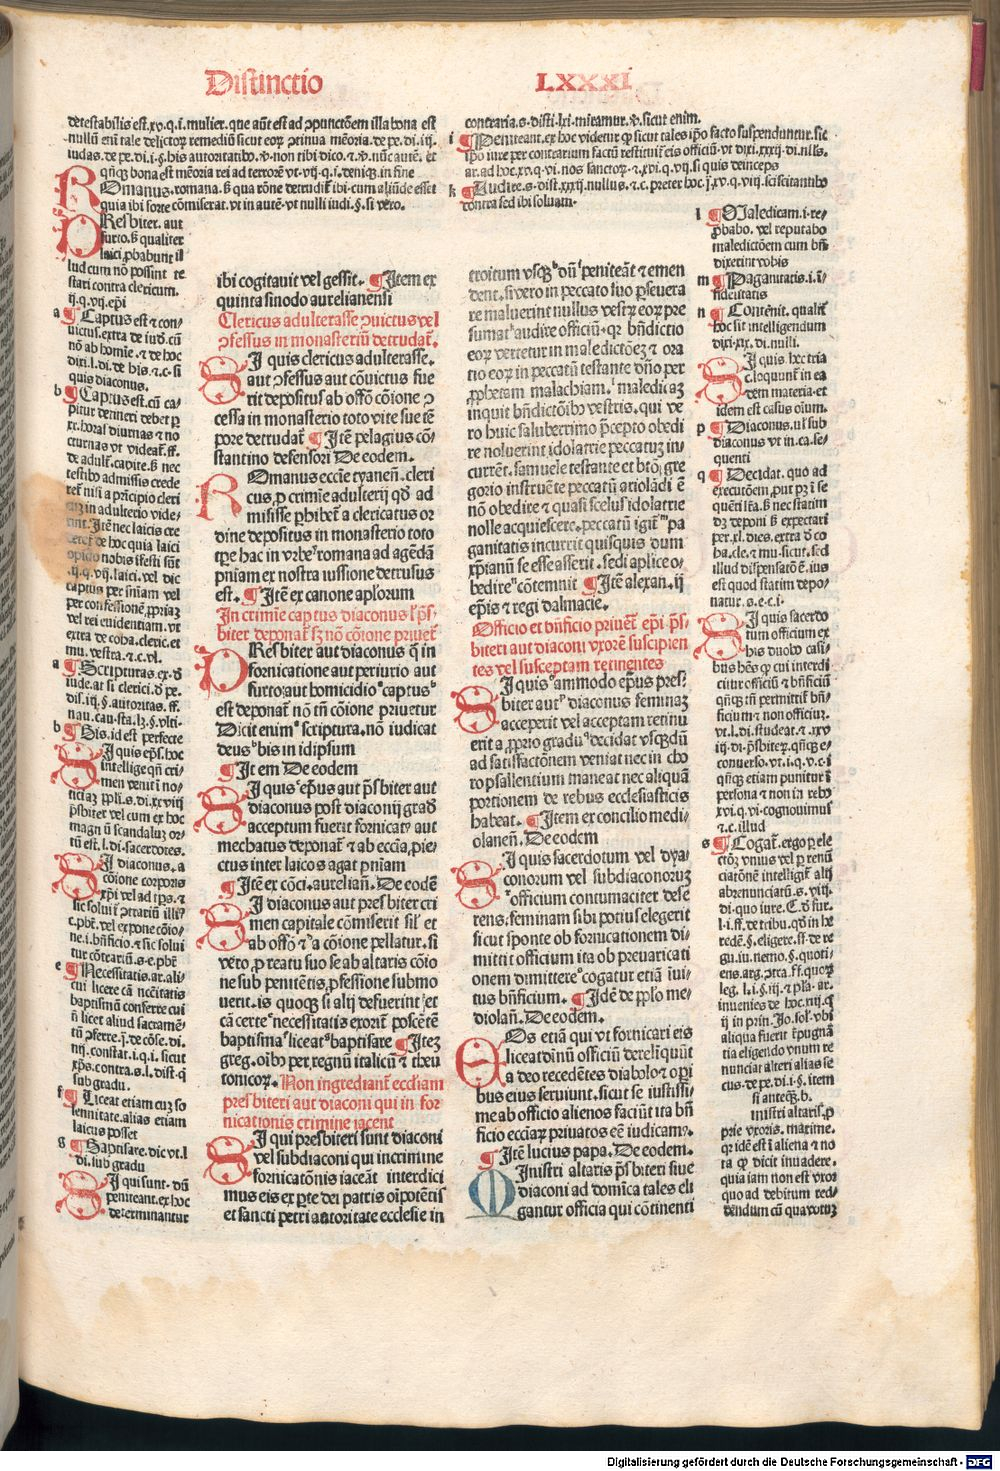 Distinctio LXXXI
detestabilis est.xv.q.i.mulier. que aūt est ad ꝯpunctōem illa bona est
nullū eni tale delictoꝝ remediū sicut eoꝝ ꝯtinua mēoria. de pe. di. iij.
iudas. de pe. di. i. §. his autoritatibo. ꝟ. non tibi dico. ⁊. ꝟ. nūc autē. et
qn̄qꝫ bona est mēoria rei ad terrorē vt. vij. q. i. deniqꝫ. in fine
Romanus. romana. ß qua rōne detrudit̄ ibi cum aliūde esset
quia ibi forte cōmiserat. vt in autē. vt nulli iudi. §. si vero.
Presbiter. aut
furto. ß qualiter
laici ꝓbabunt il
lud cum nō possint te
stari contra clericum.
ij. q. vij. ep̄i
a ¶ Captus est ⁊ con-
uictus. extra de iud. cū
nō ab homīe. ⁊ de hoc
dixi. l. di. de his. ⁊. c. si
quis diaconus.
b ¶ Captus est. cū ca-
pitur detineri debet ꝑ
xx. horas diurnas ⁊ no
cturnas vt videat̄. ff.
de adult̄. capite. ß nec
testibo admissis crede
ret̄ nisi a prīcipio cleri
cuꝫ in adulterio vide-
rint. Itē nec laicis cre
deret̄ de hoc quia laici
opido nobis īfesti sūt
ij. q. vij. laici. vel dic
captus per sn̄iam vel
per confessionē ꝓpriaꝫ
vel rei euidentiam. vt
extra de coha. cleric. et
mu. vestra. ⁊. c. vl.
a ¶ Scripturas. ex. đ
iude. at si clerici. đ pe.
dis. iij. §. autoritas. ff.
nau. cau. sta. lꝫ. §. vlti.
b ¶ Bis. id est perfecte
Si quis ep̄s. hoc
intellige qn̄ cri-
men venit ī no-
ticiaꝫ ppl̄i. s. di. xxviij
p̄sbiter vel cum ex hoc
magn ū scandaluꝫ or-
tū est. l. di. sacerdotes.
Si diaconus. a
cōione corporis
xp̄i vel ad tp̄s. ⁊
sic solui ī ꝯtrariū illi⁹
c. pb̄t. vel ex pone cōio-
ne. i. bn̄ficio. ⁊ sic solui
tur cōtrariū. s. e. pb̄t
e ¶ Necessitatis. ar. ali-
cui licere cā nc̄citatis
baptismū conferre cui
n̄ licet aliud sacramē-
tū ꝯferre. j. de cōse. di.
iiij. constat. i. q. i. sicut
xp̄s. contra. s. l. dist. q
sub gradu.
f ¶ Liceat etiam cuꝫ so
lennitate. alias etiam
laicus posset
g ¶ Baptisare. dic vt. l
di. sub gradu
Si qui sunt. dū
peniteant. ex hoc
determinantur
ibi cogitauit vel gessit. ¶ Item ex
quinta sinodo aurelianensi
Clericus adulterasse ꝯuictus vel
ꝯfessus in monasteriū detrudat̄.
Si quis clericus adulterasse.
aut ꝯfessus aut cōuictus fue
rit depositus ab offō cōione ꝯ
cessa in monasterio toto vite sue tē
pore detrudat̄ ¶ Itē pelagius cō-
stantino defensori De eodem.
Romanus ecctie tyanen̄. cleri
cus, ꝓ crimīe adulterij qđ ad
misisse ꝓhibet̄ a clericatus or
dine depositus in monasterio toto
tꝑe hac in vrbe romana ad agēdā
pn̄iam ex nostra iussione detrusus
est. ¶ Itē ex canone apl̄orum
In crimīe captus diaconus ł p̄s-
biter deponat̄ sꝫ nō cōione priuet̄
Presbiter aut diaconus q̄ in
fornicatione aut periurio aut
furto: aut homicidio captus
est deponat̄ nō tn̄ cōione priuetur
Dicit enim scriptura. nō iudicat
deus bis in idipsum
¶ It em De eodem
Si quis ep̄us aut p̄sbiter aut
diaconus post diaconij gradū
acceptum fuerit fornicat⁹ aut
mechatus deponat̄ ⁊ ab ecc̄ia, pie-
ctus inter laicos agat pn̄iam
¶ Itē ex cōci. aurelian̄. De eodē
Si diaconus aut presbiter cri
men capitale cōmiserit sil̄ et
ab offō ⁊ a cōione pellatur. si
vero, ꝓ reatu suo se ab altaris cōio
ne sub penitētis, ꝓfessione submo
uerit. is quoqꝫ si alij defuerint et
cā certe necessitatis exorit̄ poscētē
baptisma liceat baptisare ¶ Iteꝫ
greg. oībo per regnū italicū ⁊ theu
tonicoꝝ. Non ingrediant̄ eccl̄iam
presbiteri aut diaconi qui in for
nicationis crimine iacent
Si qui presbiteri sunt diaconi
vel subdiaconi qui incrimine
fornicatōnis iaceāt interdici
mus eis ex ꝑte dei patris oīpotētis
et sancti petri autoritate ecclesie in
contraria. s. disti. lxi. miramur. ꝟ. sicut enim.
i ¶ Peniteant. ex hoc videtur ꝙ sicut tales ip̄o facto suspenduntur. sic
ip̄o iure per contrarium factū restituūt̄ eis officiū. vt dixi. xxxij. di. nlls.
ar. ad hoc. xv. q. vi. nos sanctoꝝ. ⁊. xvi. q. vij. si quis deinceps
k ¶ Audire. s. dist. xxxij. nullus. ⁊. c. preter hoc. j. xv. q. viij. sciscitantibo
contra sed ibi soluam.
troitum vsqꝫ dū peniteāt ⁊ emen
dent. si vero in peccato suo ꝑseuera
re maluerint nullus vestꝝ eoꝝ pre
sumat audire officiū. qꝛ bn̄dictio
eoꝝ vertetur in maledictōeꝫ ⁊ ora
tio eoꝝ in peccatū testante dn̄o per
ꝓphetam malachiam. maledicaꝫ
inquit bn̄dictōibo vestris. qui ve
ro huic saluberrimo p̄cepto obedi
re noluerint idolatrie peccatuꝫ in-
currēt. samuele testante et btō, gre
gorio instruēte peccatū ariolādi ē
nō obedire ⁊ quasi scelus idolatrie
nolle acquiescere. peccatū igit̄ pa
ganitatis incurrit quisquis dum
xp̄ianū se esse asserit. sedi aplice o-
bedire cōtemnit ¶ Itē alexan. ij
ep̄is ⁊ regi dalmacie.
Officio et bn̄ficio priuēt̄ ep̄i p̄s-
biteri aut diaconi vxorē suscipien
tes vel susceptam retinentes
Si quis ammodo ep̄us pres-
biter aut diaconus feminaꝫ
acceperit vel acceptam retinu
erit a, ꝓprio gradu decidat vsqꝫ dū
ad satisfactōnem veniat nec in cho
ro psallentium maneat nec aliquā
portionem de rebus ecclesiasticis
habeat. ¶ Item ex concilio medi-
olanen̄. De eodem
Si quis sacerdotum vel dya-
conorum vel subdiaconoruꝫ
officium contumaciter dese
rens, feminam sibi potius elegerit
sicut sponte ob fornicationem di-
mittit officium ita ob preuaricati
onem dimittere cogatur etiā īui-
tus bn̄ficium. ¶ Idē de pp̄lo me-
diolan̄. De eodem.
Eos etiā qui vt fornicari eis
liceat dīnū officiū dereliquūt
a deo recedētes diabolo ⁊ oꝑi
bus eius seruiunt. sicut se iustissi-
me ab officio alienos faciūt ita bn̄
ficio ecciaꝝ priuatos eē iudicam⁹.
¶ Itē lucius papa. De eodem.
Ministri altaris p̄sbiteri siue
diaconi ad domīca tales eli
gantur officia qui cōtinenti
l ¶ Maledicam. i. re-
ꝓbabo. vel reputabo
maledictōem cum bn̄
dixerint vobis
m ¶ Paganitatis. i. ī-
fidelitatis
n ¶ Contēnit. qualit̄
hoc sit intelligendum
dixi. xix. di. nulli.
Si quis hec tria
c. loquunt̄ in ea
dem materia. et
idem est casus oīum.
p ¶ Diaconus. vl̄ sub
diaconus vt in. ca. se-
quenti
q ¶ Decidat. quo ad
executōem, put pꝫ ī se
quēti lr̄a. ß nec statim
dꝫ deponi ß expectari
per. xl. dies. extra đ co
ha. cle. ⁊ mu. sicut. sed
illud dispensatō ē. ius
est quod statim depo-
natur. s. e. c. i.
Si quis sacerdo
tum officium ex
his duobo casi-
bus hēs ꝙ cui interdi
citur officiū ⁊ bn̄ficiū
qn̄qꝫ tn̄ permittit̄ bn̄-
ficium ⁊ non officiuꝫ.
vt. l. di. studeat. ⁊. xxv
iij. di. p̄sbiteꝝ. qn̄qꝫ e-
conuerso. vt. i. q. v. c. i
qn̄qꝫ etiam punitur ī
persona ⁊ non in rebo
xvi. q. vi. cognouimus
⁊. c. illud
s ¶ Cogat̄. ergo ꝑ ele
ctōꝫ vnius vel ꝑ renū
ciatōnē intelligit̄ alij
abrenunciatū. s. viij.
di. quo iure. C. đ fur.
l. i. ff. de tribu. qđ in he
redē. §. eligere. ff. de re
gu. iu. nemo. §. quoti-
ens. arg. ꝯtra. ff. quoꝝ
leg. l. i. §. iij. ⁊ pl̄a. ar.
inuenies de hoc. xij. q.
ij in prin. Jo. sol. vbi
aliqua fuerit r̄pugnā
tia eligendo vnum re
nunciar alteri alias se
cus. de pe. di. i. §. item
si anteqꝫ. b.
inistri altaris. ꝓ
prie vxoris. maxime.
qꝛ idē est ī aliena ⁊ no
ta ꝙ dicit inuadere.
quia iam non est vxor
quo ad debitum red-
dendum cū qua votuꝫ
Digitalisierung gefördert durch die Deutsche Forschungsgemeinschaft - DFG